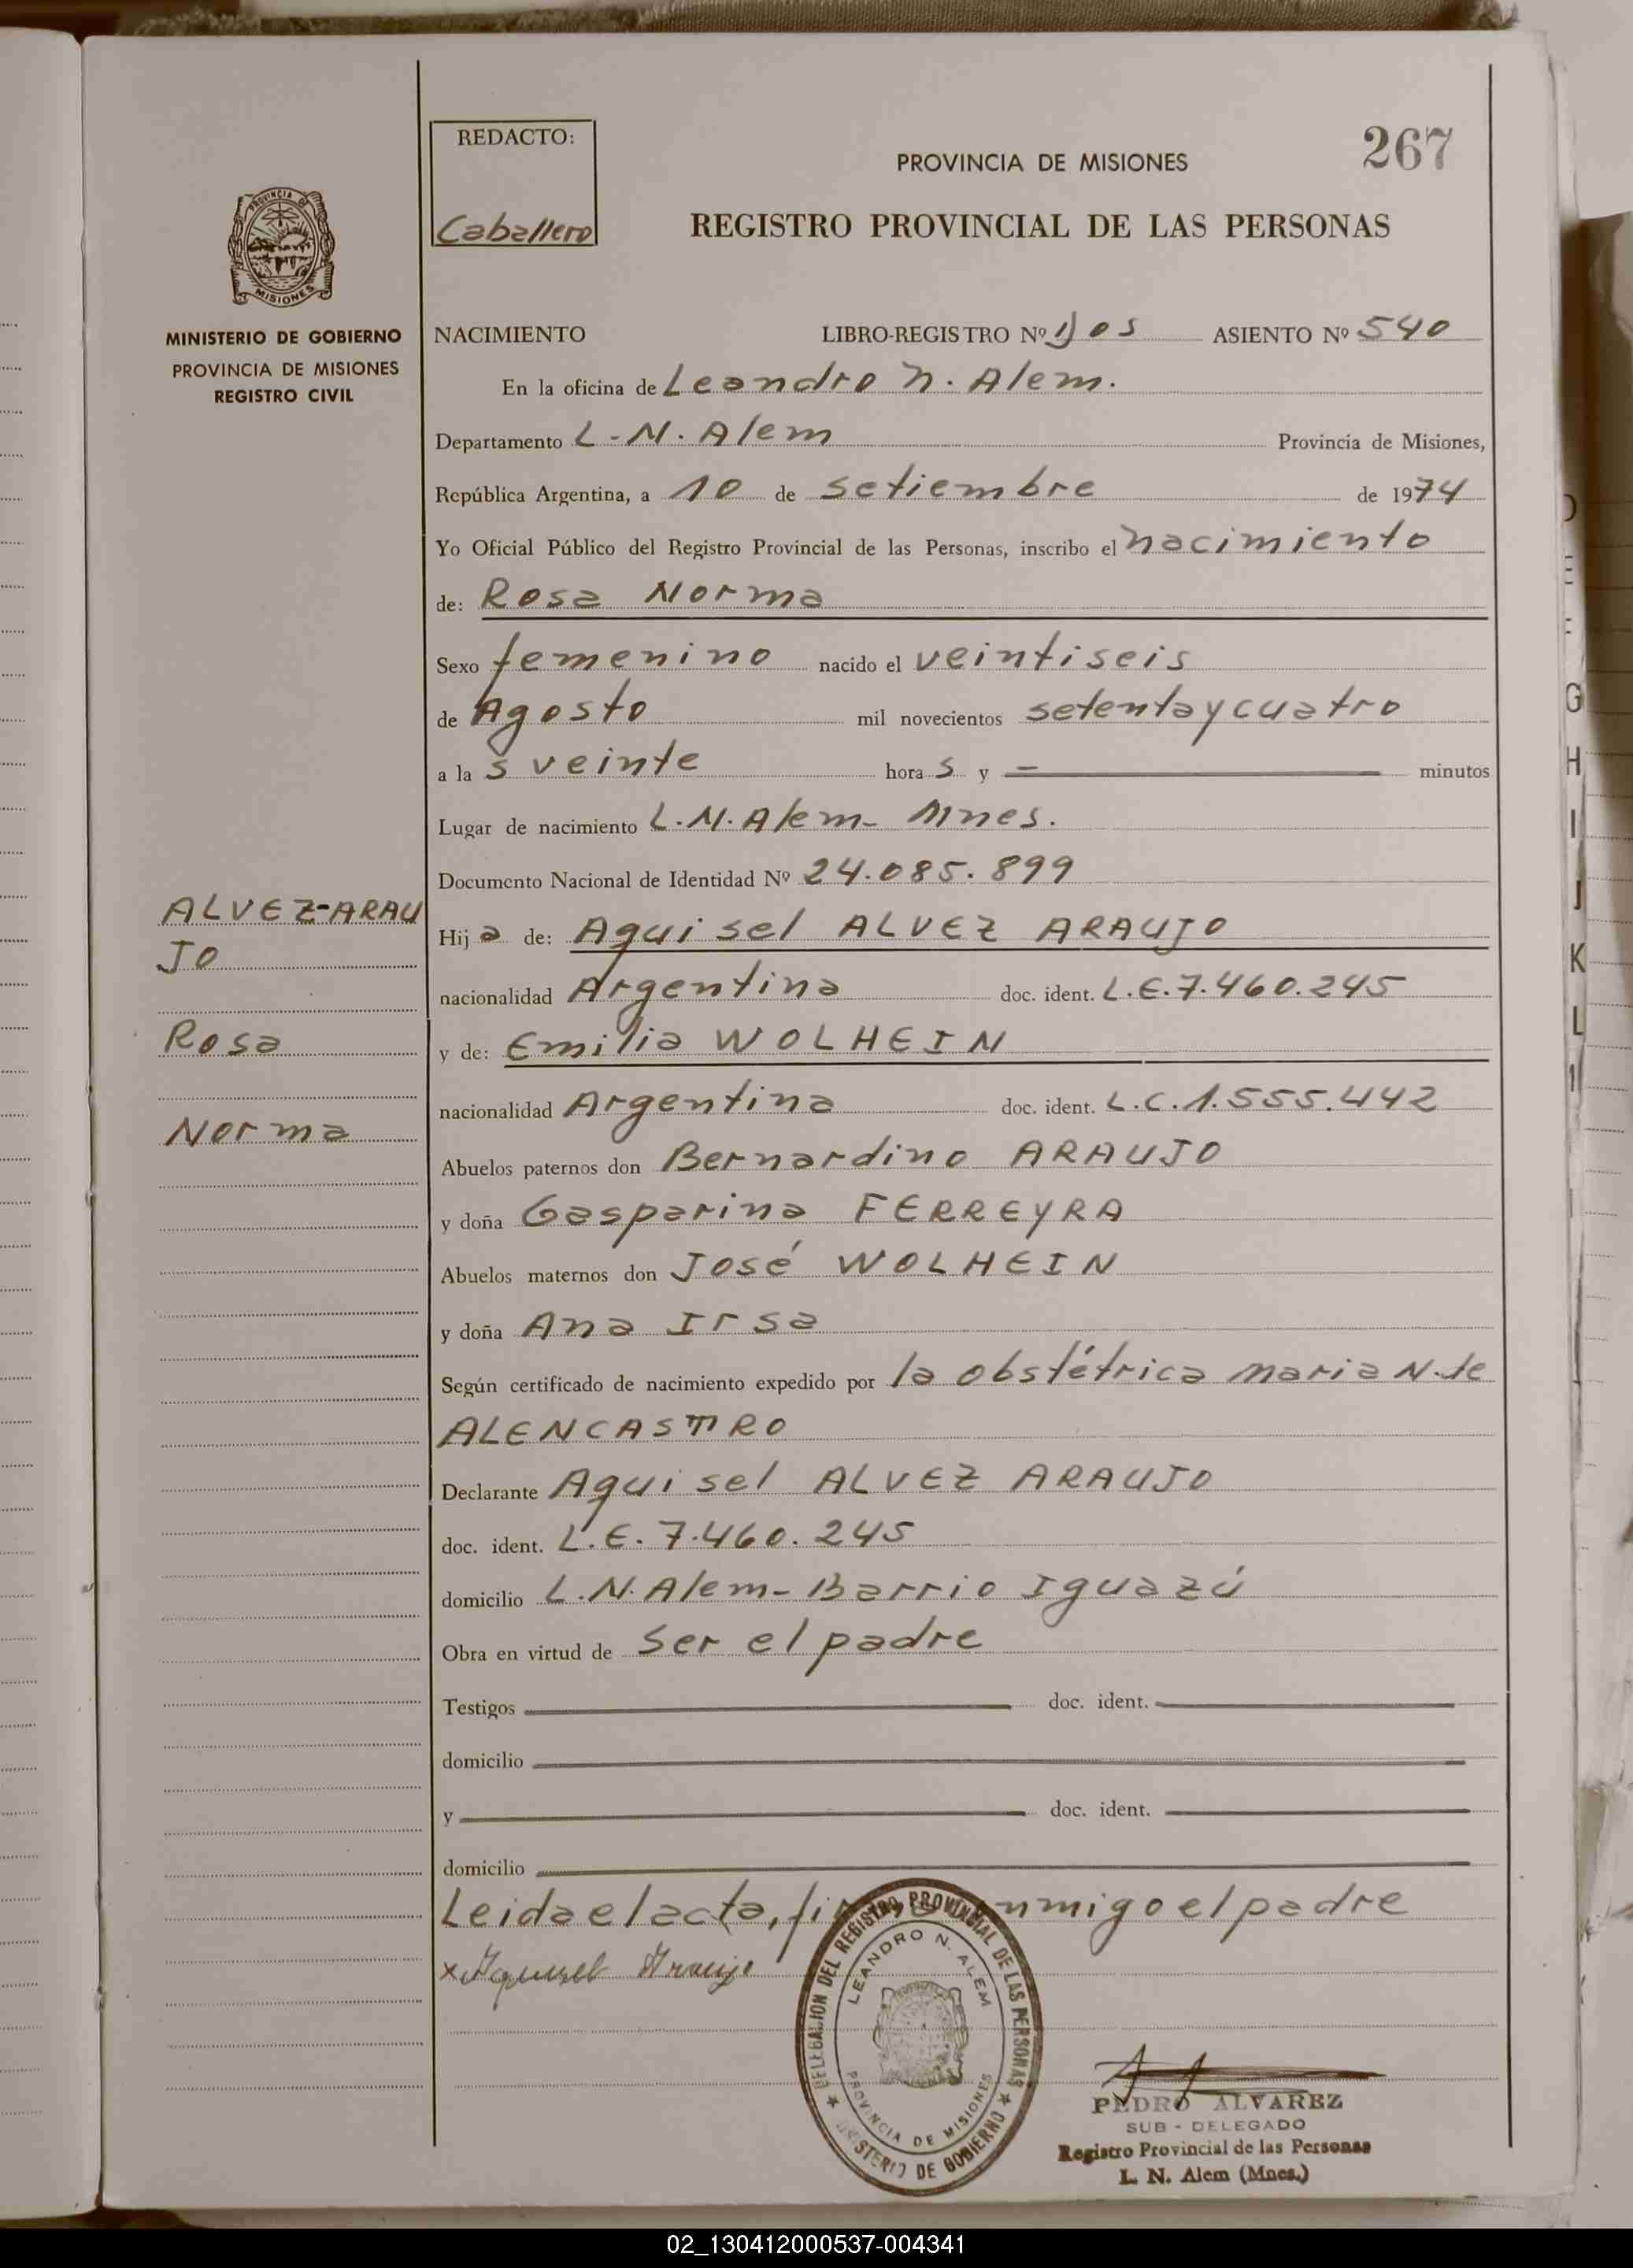 267
REDACTO:
Caballero
PROVINCIA DE MISIONES
REGISTRO PROVINCIAL DE LAS PERSONAS
PROVINCIA DE
MISIONES
MINISTERIO DE GOBIERNO
PROVINCIA DE MISIONES
REGISTRO CIVIL
NACIMIENTO LIBRO-REGISTRO Nº Dos ASIENTO Nº 540
En la oficina de Leandro N. Alem.
Departamento L-N. Alem Provincia de Misiones,
República Argentina, a 10 de setiembre de 1974
Yo Oficial Público del Registro Provincial de las Personas, inscribo el nacimiento
de: Rosa Norma
Sexo femenino nacido el veintiseis
de Agosto mil novecientos setenta y cuatro
a la s veinte hora s y — minutos
Lugar de nacimiento L.N. Alem- Mnes.
Documento Nacional de Identidad Nº 24.085.899
ALVEZ-ARAU
JO
Rosa
Norma
Hij a de: Aquisel ALVEZ ARAUJO
nacionalidad Argentina doc. ident. L.E. 7.460.245
y de: Emilia WOLHEIN
nacionalidad Argentina doc. ident. L.C. 1.555.442
Abuelos paternos don Bernardino ARAUJO
y doña Gasparina FERREYRA
Abuelos maternos don José WOLHEIN
y doña Ana Irsa
Según certificado de nacimiento expedido por la obstétrica Maria N. de
ALENCASTRO
Declarante Aquisel ALVEZ ARAUJO
doc. ident. L.E. 7.460.245
domicilio L.N. Alem- Barrio Iguazú
Obra en virtud de Ser el padre
Testigos doc. ident.
domicilio
y doc. ident.
domicilio
Leida el acta, conmigo el padre
x Aquisel Araujo
DELEGACION DEL REGISTRO PROVINCIAL DE LAS PERSONAS
MINISTERIO DE GOBIERNO
LEANDRO N. ALEM
PROVINCIA DE MISIONES
PEDRO ALVAREZ
SUB - DELEGADO
Registro Provincial de las Personas
L. N. Alem (Mnes.)
G
H
I
J
K
L
02_130412000537-004341